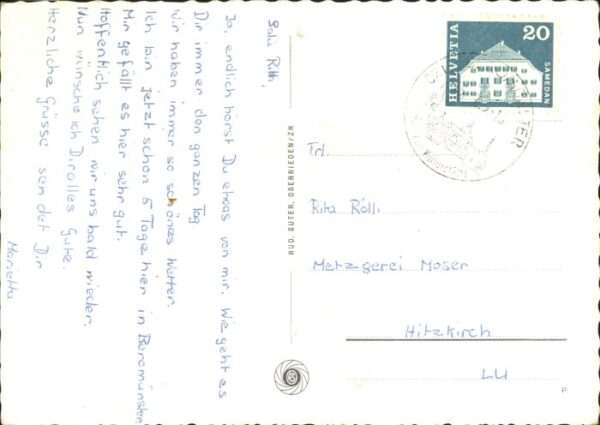 Sali Rita,
Ja, endlich hörst Du etwas von mir. Wie geht es
Dir immer den ganzen Tag
Wir haben immer so schönes Wetter.
Ich bin jetzt schon 5 Tage hier in Beromünster
Mir gefällt es hier sehr gut.
Hoffentlich sehen wir uns bald wieder.
Nun wünsche ich Dir alles Gute.
Herzliche Grüsse sendet Dir
RUD. SUTER, OBERRIEDEN/ZH
HELVETIA
20
SAMEDAN
Frl.
Rita Rölli
Metzgerei Moser
Hitzkirch
LU